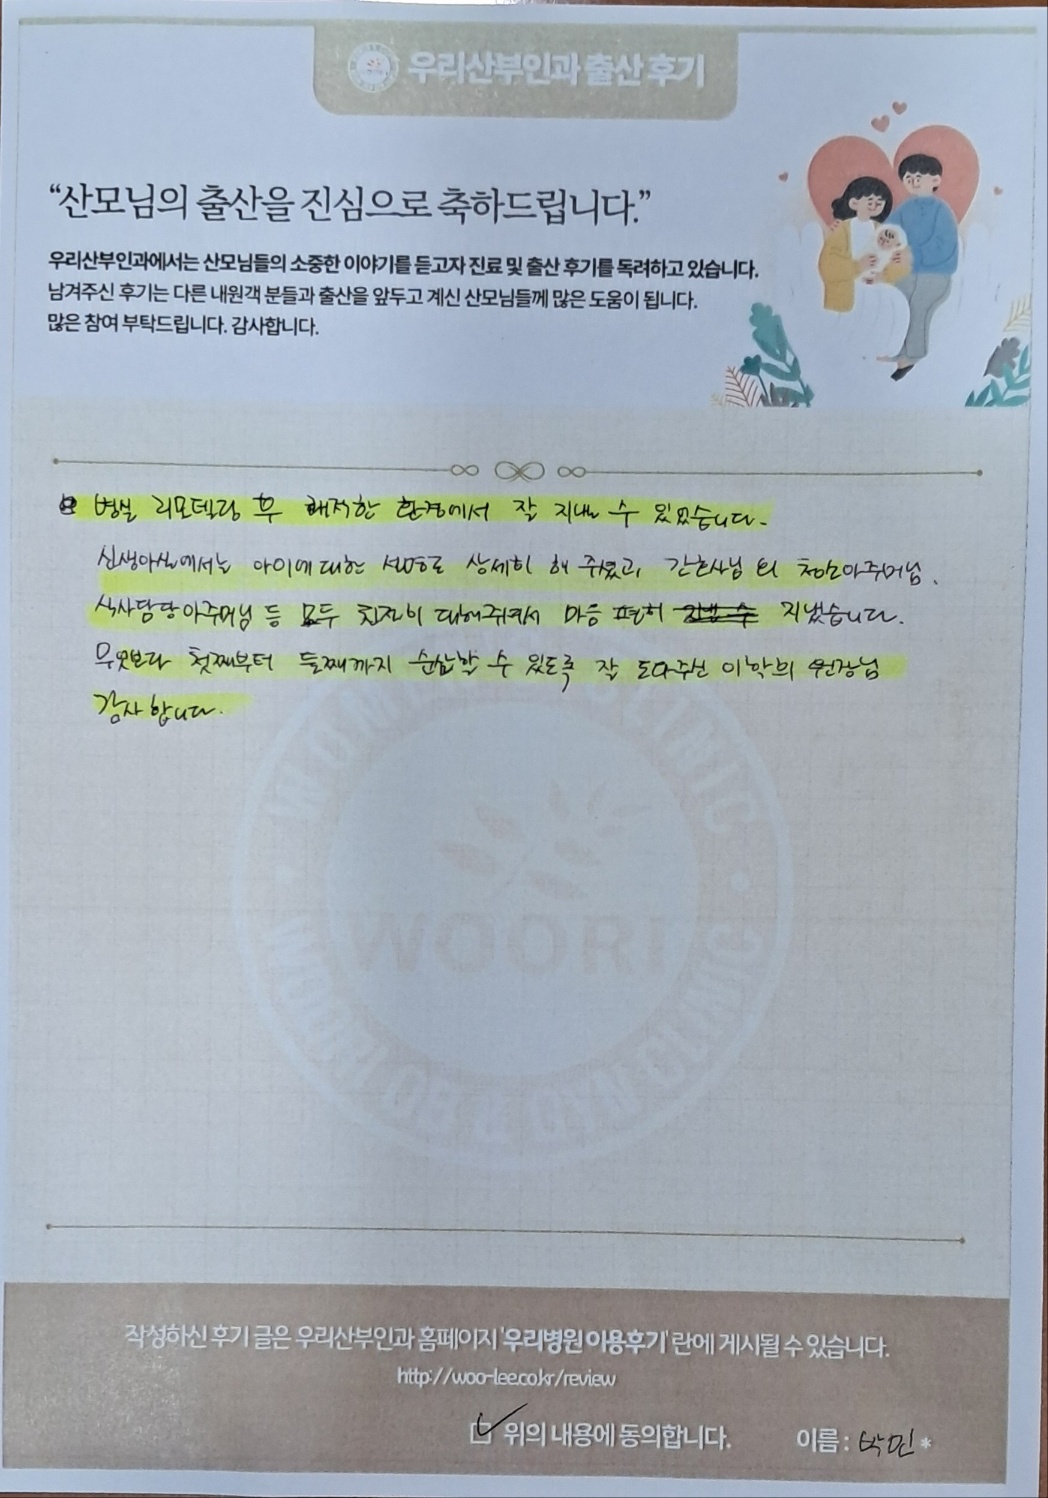 우리산부인과 출산 후기
“산모님의 출산을 진심으로 축하드립니다.”
우리산부인과에서는 산모님들의 소중한 이야기를 듣고자 진료 및 출산 후기를 독려하고 있습니다.
남겨주신 후기는 다른 내원객 분들과 출산을 앞두고 계신 산모님들께 많은 도움이 됩니다.
많은 참여 부탁드립니다. 감사합니다.
병실 리모델링 후 쾌적한 환경에서 잘 지낼 수 있었습니다.
신생아실에서는 아이에 대한 설명도 상세히 해 주셨고, 간호사님 외 청소아주머님,
식사담당아주머님 등 모두 친절히 대해주셔서 마음 편히 지냈습니다.
무엇보다 첫째부터 둘째까지 순산할 수 있도록 잘 도와주신 이학의 원장님
감사합니다.
WOMEN'S CLINIC
WOORI
WOORI OB & GYN CLINIC
작성하신 후기 글은 우리산부인과 홈페이지 '우리병원 이용후기' 란에 게시될 수 있습니다.
http://woo-lee.co.kr/review
위의 내용에 동의합니다. 이름 : 박민*